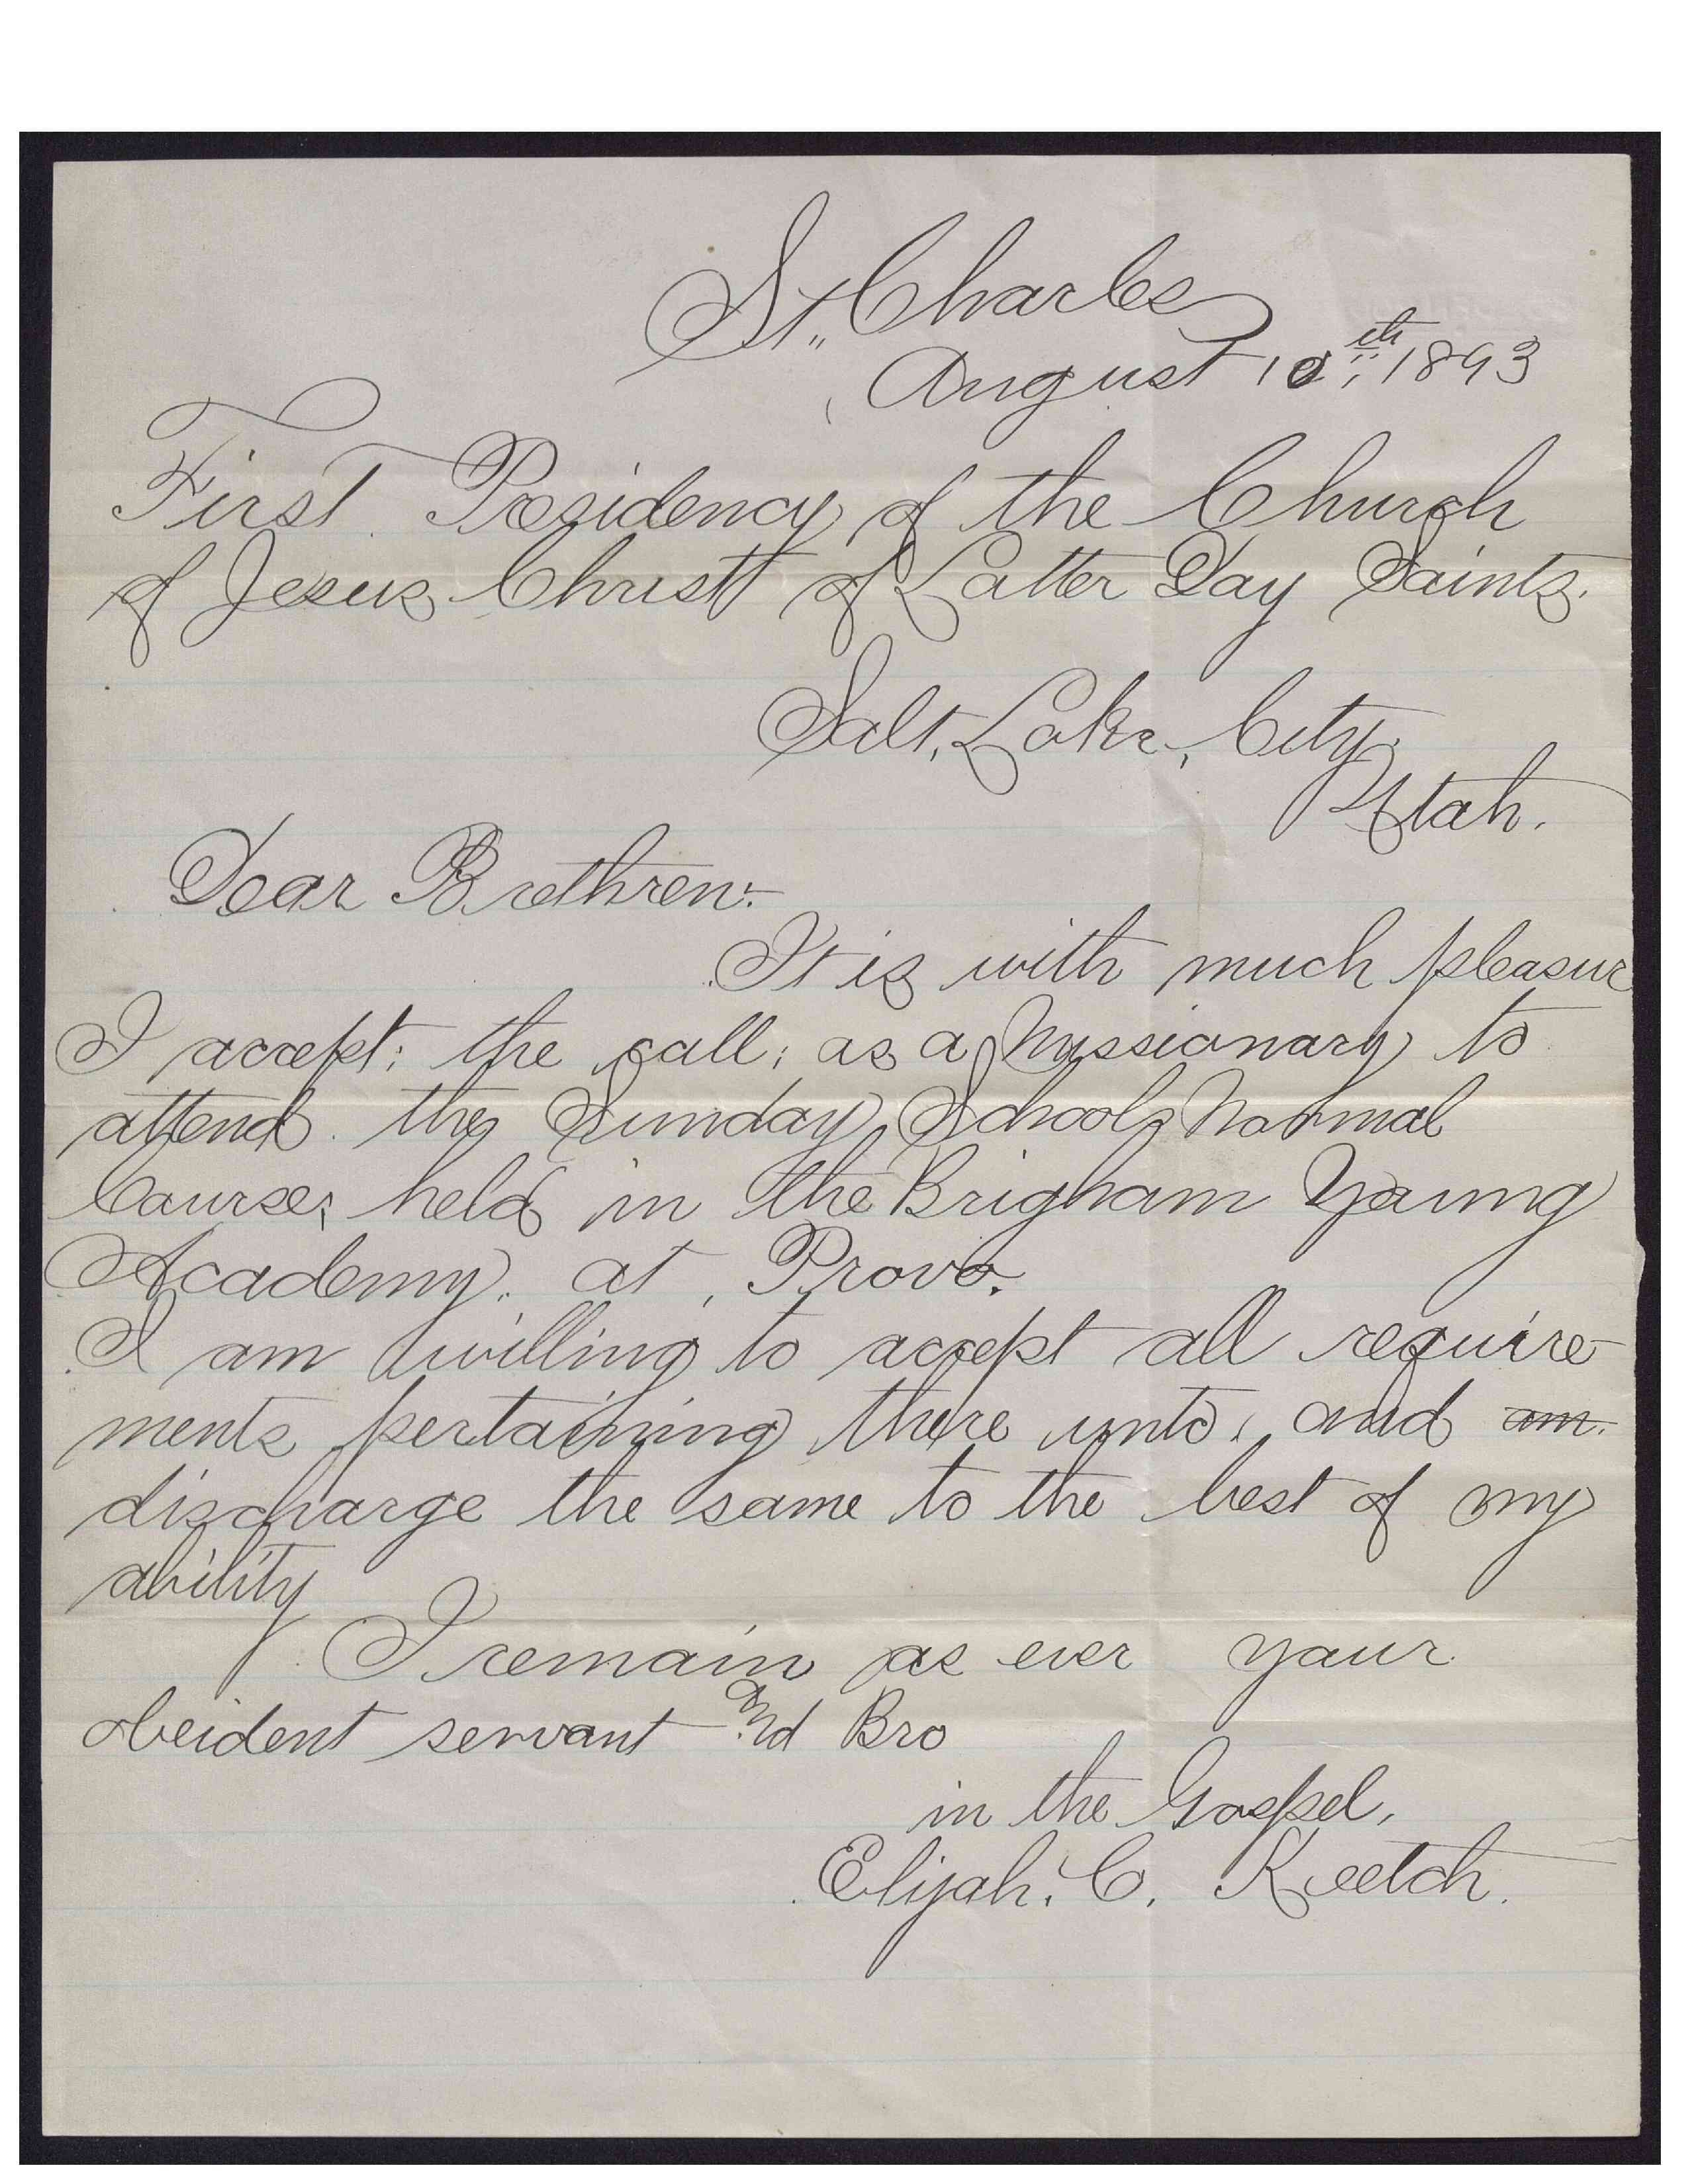 St. Charles
August 10th, 1893
First Presidency of the Church
of Jesus Christ of Latter Day Saints.
Salt, Lake, City.
Utah.
Dear Brethren:-
It is with much pleasure
I accept; the call; as a Missionary to
attend the Sunday School Normal
Course; held in the Brigham Young
Academy. at, Provo.
I am willing to accept all require
ments pertaining there unto, and am
discharge the same to the best of my
ability
I remain as ever your
obeident servant and Bro
in the Gospel,
Elijah. C. Keetch.